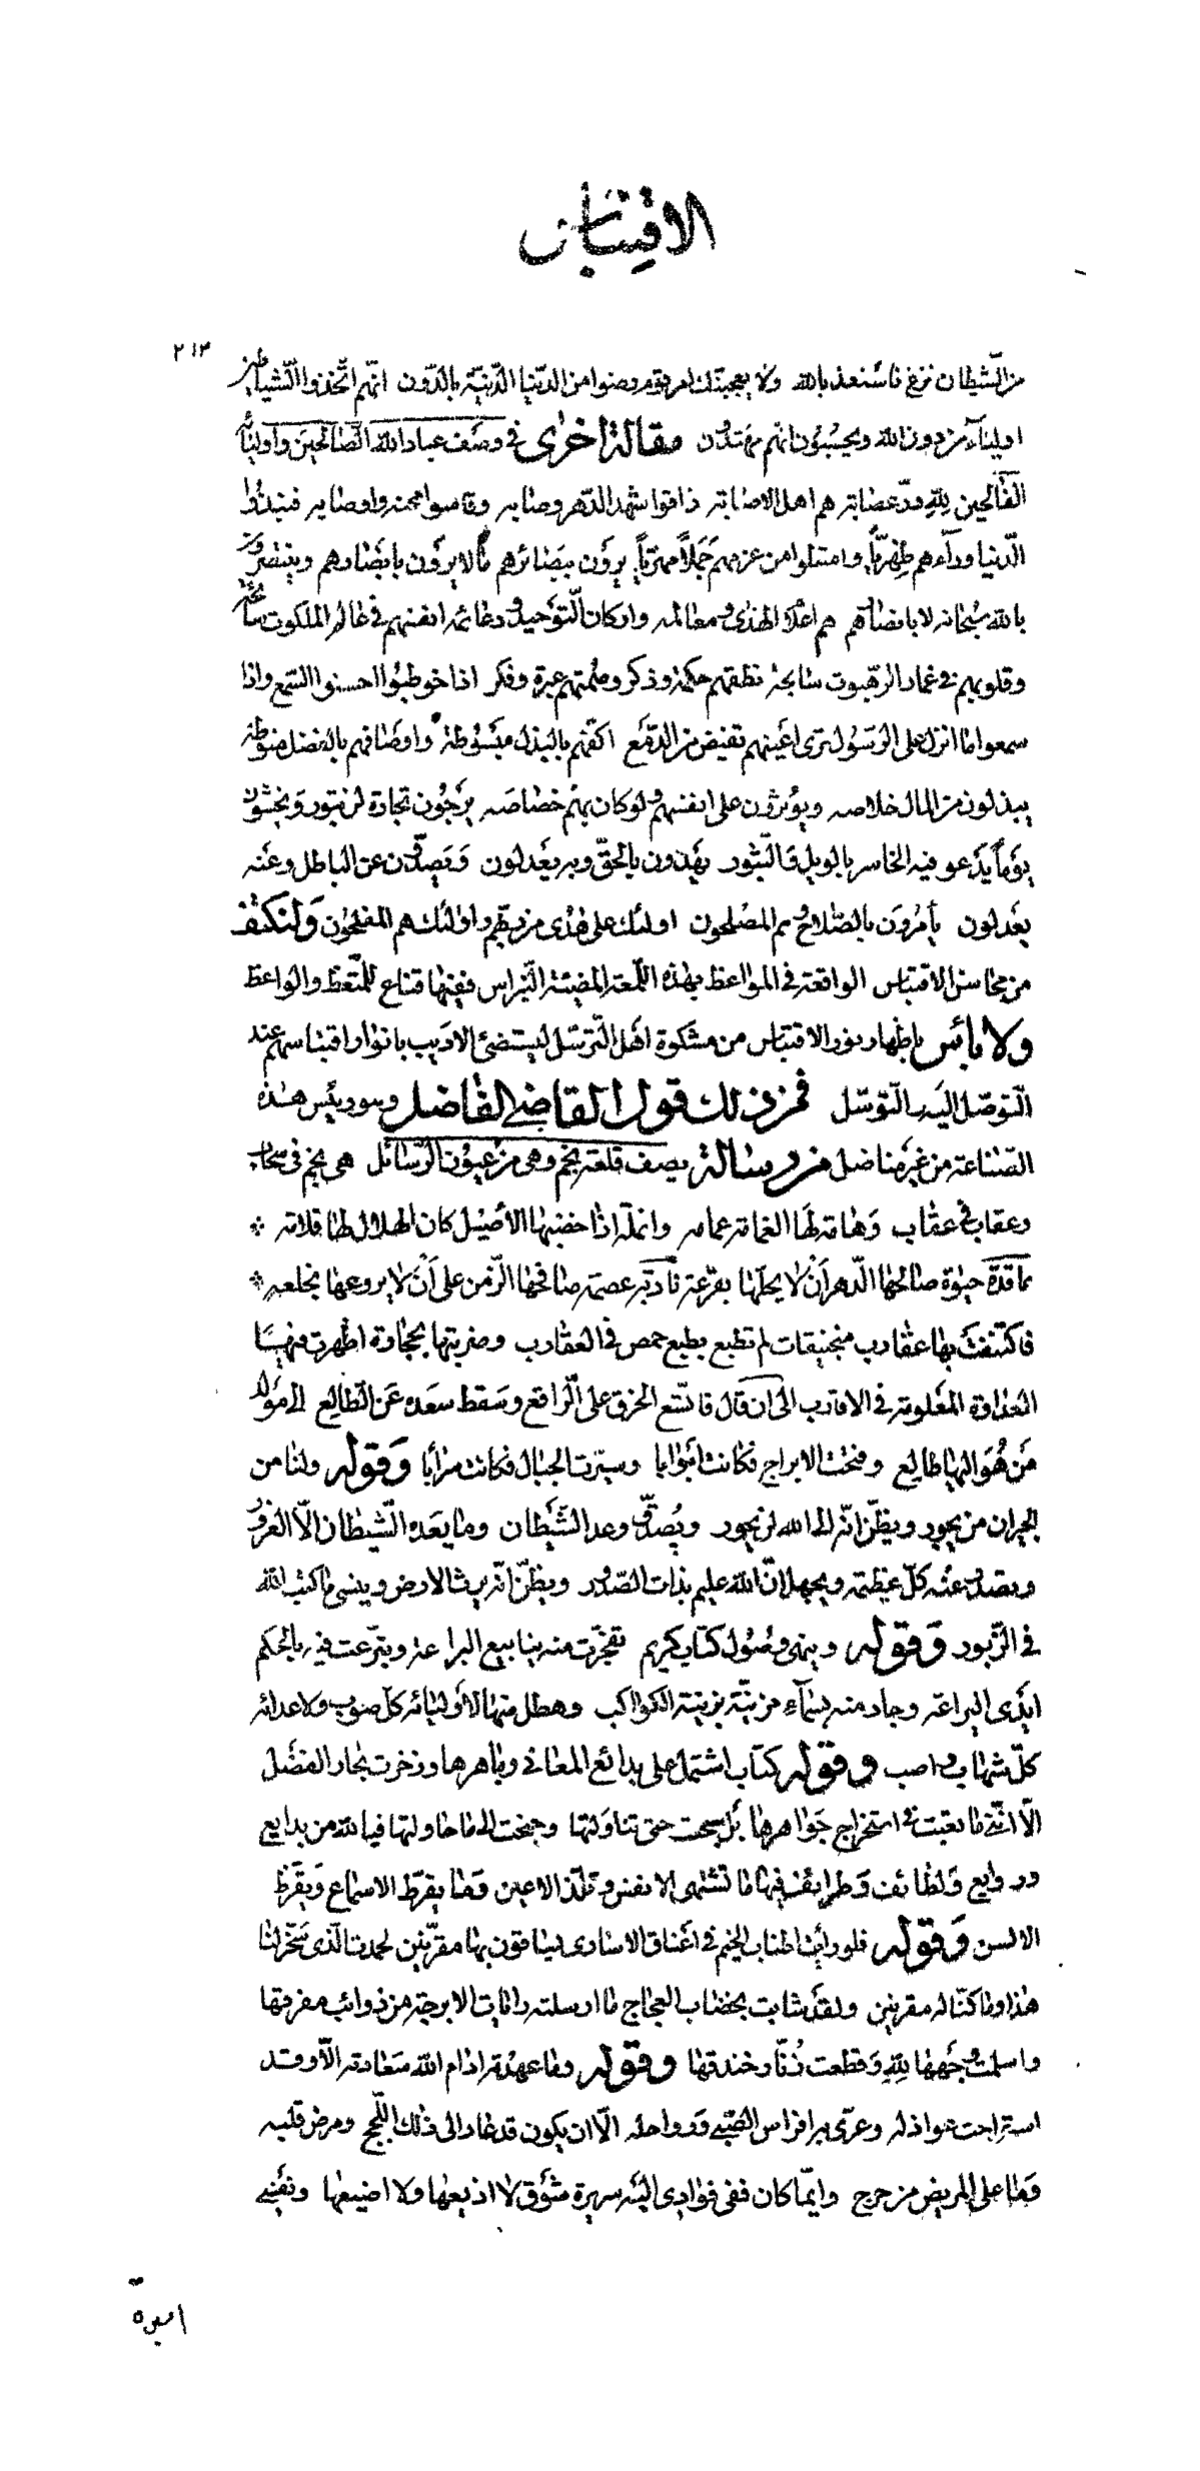 الاقتباس
٢١٣
من الشيطان نزغ فاستعذ بالله ولا يعجبنك امر قوم رضوا من الدنيا الدنية بالدون انهم اتخذوا الشياطين
اولياء من دون الله ويحسبون انهم مهتدون مقالة اخرى في وصف عباد الله الصالحين واوليائه
الفالحين لله در عصابة هم اهل الاصابة ذاقوا شهد الدهر وصابه وقاسوا محنه واوصابه فنبذوا
الدنيا وراءهم ظهريا وامتثلوا من عزمهم جملا مهريا يرون ببصائرهم ما لا يرون بابصارهم وينتصرون
بالله سبحانه لا بانصارهم هم اعلام الهدى ومعالمه واركان التوحيد ودعائمه انفسهم في عالم الملكوت سائحة
وقلوبهم في غمار الرهبوت سابحة نطقهم حكمة وذكر وصمتهم عبرة وفكر اذا خوطبوا احسنوا السمع واذا
سمعوا ما انزل على الرسول ترى اعينهم تفيض من الدمع اكفهم بالبذل مبسوطة واوصافهم بالفضل منوطة
يبذلون من المال خلاصه ويؤثرون على انفسهم ولو كان بهم خصاصه يرجون تجارة لن تبور ويخشون
يوما يدعو فيه الخاسر بالويل والثبور يهدون بالحق وبه يعدلون ويصدون عن الباطل وعنه
يعدلون يأمرون بالصلاح وهم المصلحون اولئك على هدى من ربهم واولئك هم المفلحون ولنكتف
من محاسن الاقتباس الواقعة في المواعظ بهذه اللمعة المضيئة النبراس ففيها قناع للمتعظ والواعظ
ولا بأس باظهار نور الاقتباس من مشكوة اهل الترسل ليستضئ الاديب بانوار اقتباسهم عند
التوصل اليه التوسل فمن ذلك قول القاضي الفاضل وهو رئيس هذه
الصناعة من غير مناضل من رسالة يصف قلعة نجم وهي من عيون الرسائل هي نجم في سحاب
وعقاب في عقاب وهامة لها الغمامة عمامه وانملة اذا خضبها الأصيل كان الهلال لها قلامة
عاقدة حبوة صالحها الدهر أن لا يحلها بقرعة نادبة عصمة صافحها الزمن على أن لا يروعها بخلعه
فاكتنفت بها عقارب منجنيقات لم تطبع بطبع حمص في العقارب وضربتها بحجارة اظهرت فيها
العداوة المعلومة في الاقارب الى ان قال فاتسع الخرق على الراقع وسقط سعده عن الطالع الى مولد
من هو اليها طالع وفتحت الابراج فكانت أبوابا وسيرت الجبال فكانت سرابا وقوله ولنا من
الجيران من يجور ويظن انه الى الله لن يحور ويصدق وعد الشيطان وما يعده الشيطان الا الغرور
ويصدر عنه كل عظيمة ويجهل ان الله عليم بذات الصدور ويظن انه يرث الارض وينسى ما كتب الله
في الزبور وقوله وينهى وصول كتاب كريم تفجرت منه ينابيع البراعة وتبرعت فيه بالحكم
ايدى اليراعة وجاد منه بسماء مزينة بزينة الكواكب وهطل منها لاوليائه كل صوب ولاعدائه
كل شهاب واصب وقوله كتاب اشتمل على بدائع المعاني وباهرها وزخرت بحار الفضل
الا انني ما تعبت في استخراج جواهرها بل سبحت حتى تناولتها وجنحت الى ما حاولتها فيا لله من بدايع
وروايع ولطائف وطرايف فيها ما تشتهى الانفس وتلذ الاعين وما يقرط الاسماع ويقرظ
الالسن وقوله فلو رأيت اطناب الخيم في اعناق الاسارى يساقون بها مقرنين لحمدت الذى سخر لنا
هذا وما كنا له مقرنين ولقد شابت بخضاب العجاج ما ارسلته رايات الابرجة من ذوائب مفرقها
واسلمت وجهها لله وقطعت زنار خندقها وقوله وما عهدته ادام الله سعادته الا وقد
استراحت عواذله وعرى به افراس الصبى ورواحله الا ان يكون قد عاد الى ذلك اللجج ومرض قلبه
وما على المريض من حرج وايما كان ففى فؤادى اليه سريرة شوق لا اذيعها ولا اضيعها ونفسي
اسيرة